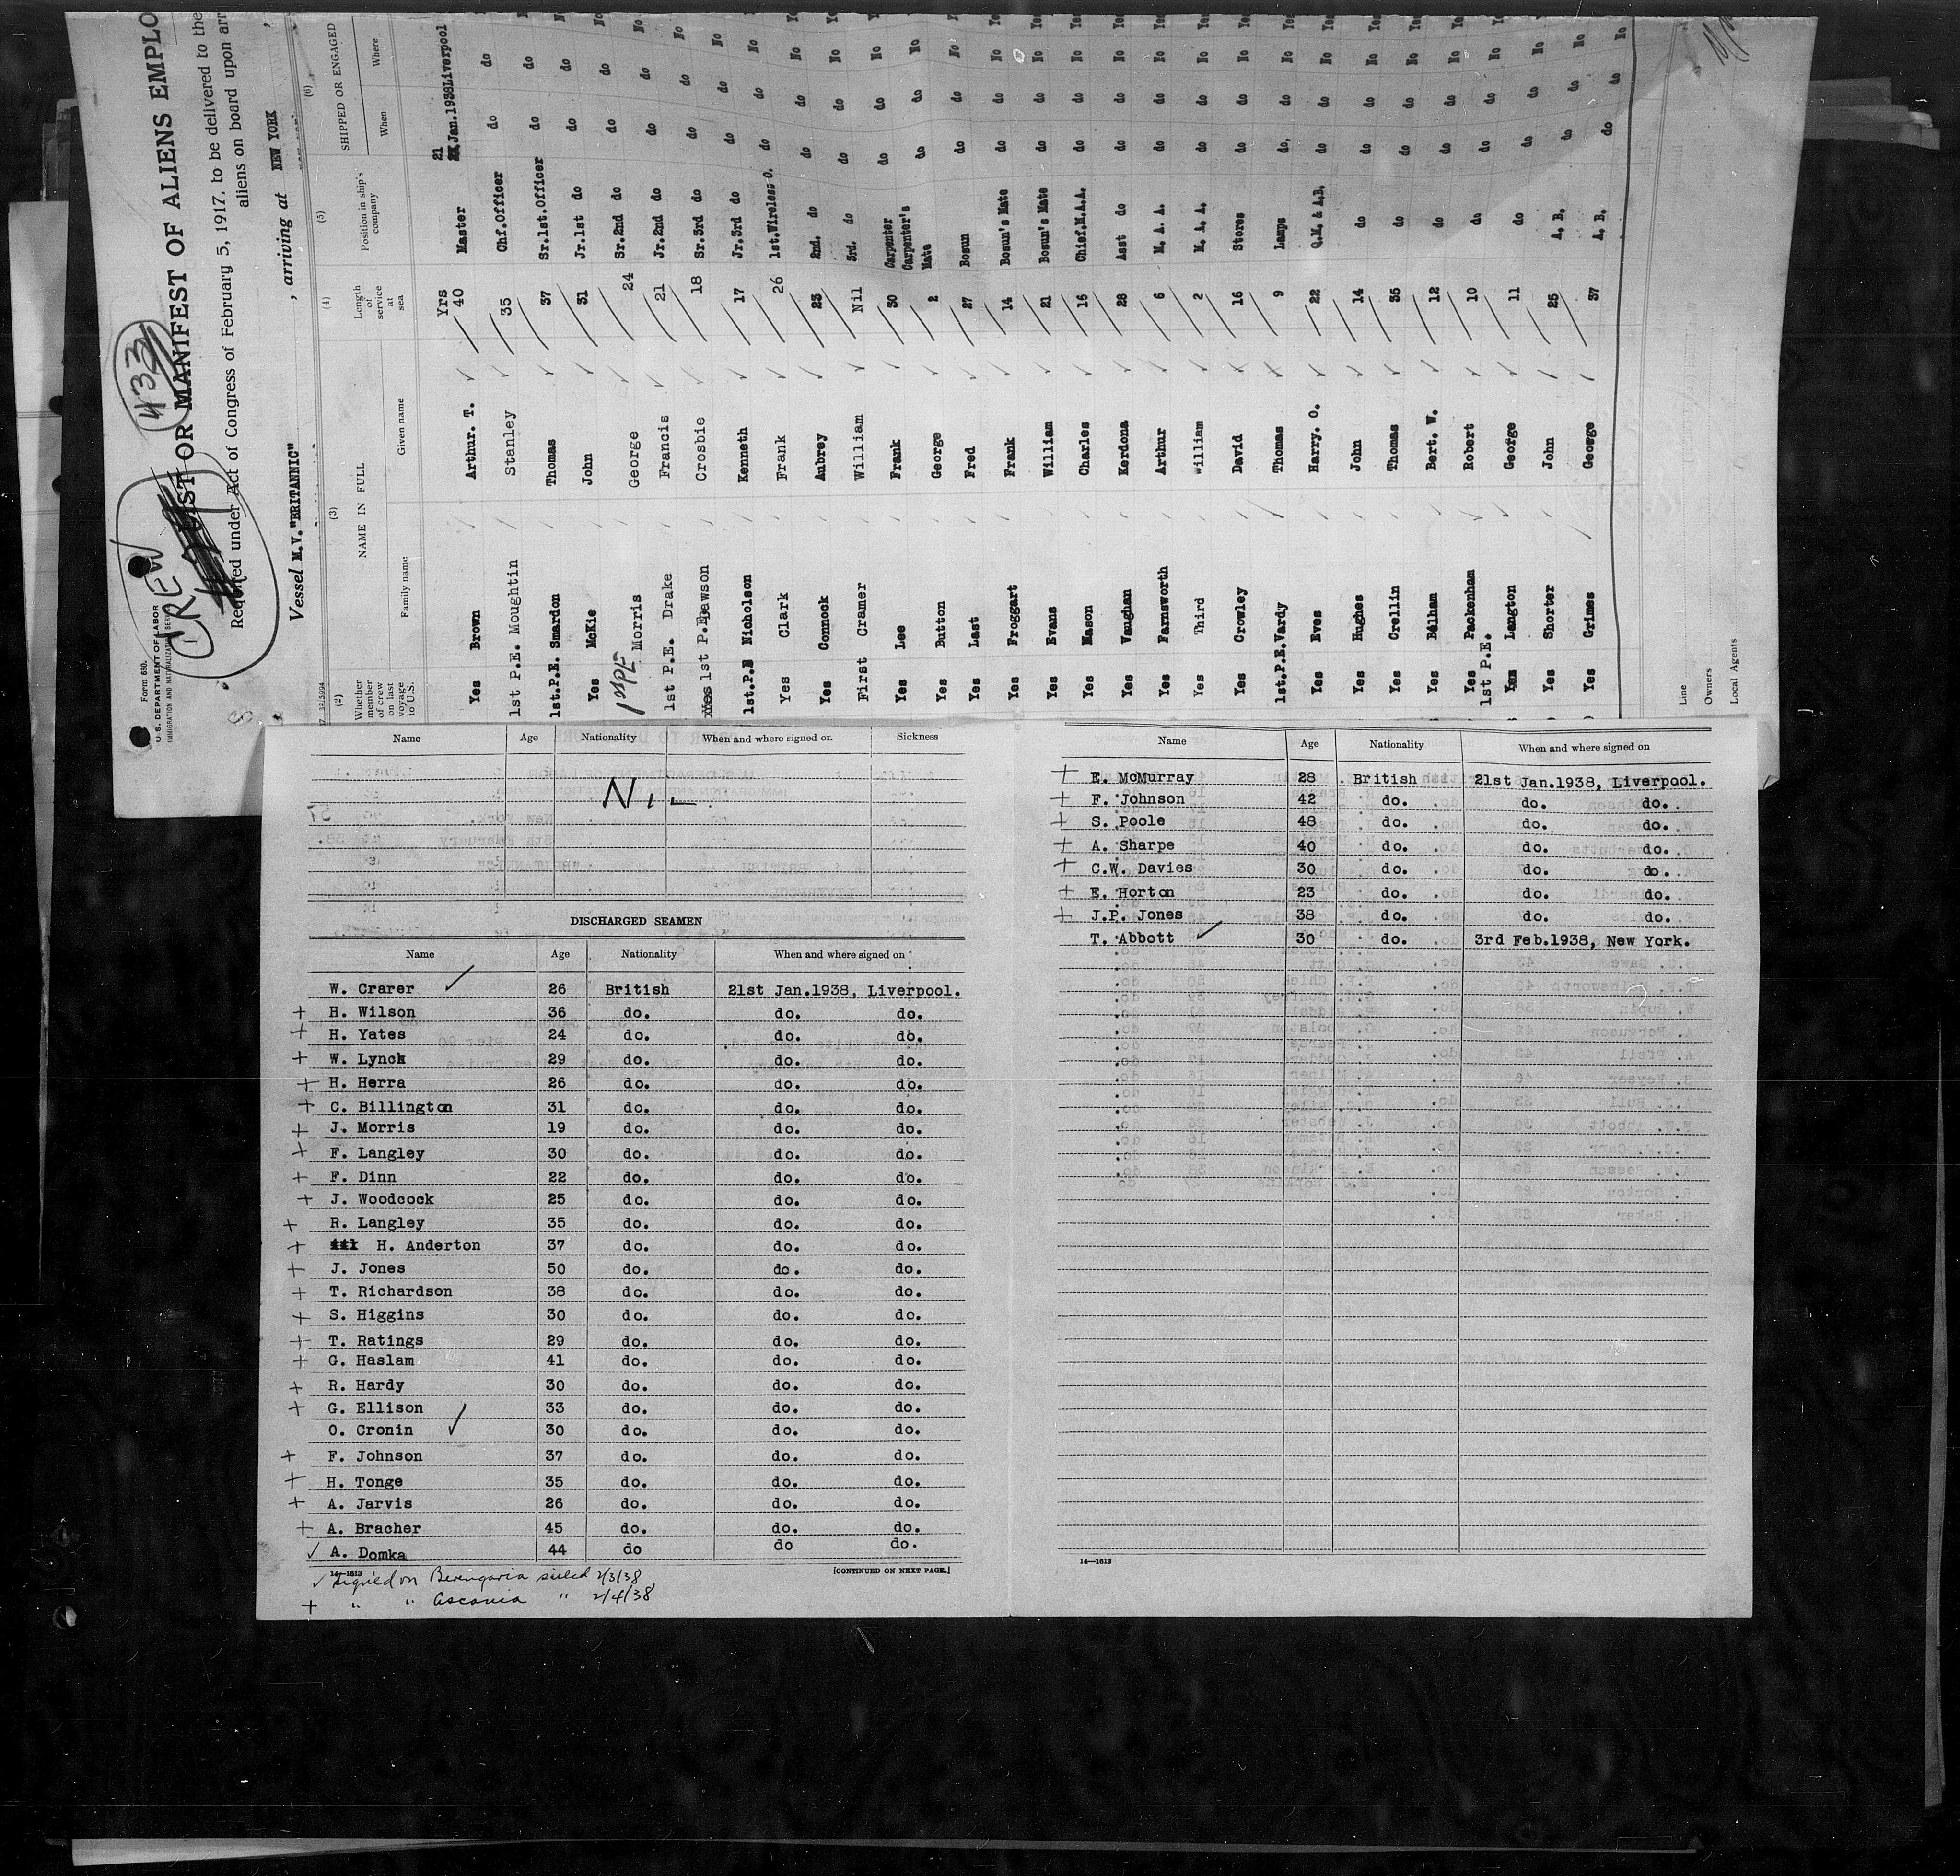 Form 680.
U. S. DEPARTMENT OF LABOR
IMMIGRATION AND NATURALIZATION SERVICE
CREW
433
LIST OR MANIFEST OF ALIENS EMPLO
Required under Act of Congress of February 5, 1917, to be delivered to the
aliens on board upon arr
Vessel M.V. "BRITANNIC" , arriving at NEW YORK
(2) (3) (4) (5) (6)
Whether member of crew on last voyage to U.S. NAME IN FULL Length of service at sea Position in ship's company SHIPPED OR ENGAGED
Family name Given name When Where
Yrs 21
Yes Brown Arthur. T. 40 Master Jan.1938 Liverpool
1st P.E. Moughtin Stanley 35 Chf.Officer do do No
1st.P.E. Smardon Thomas 37 Sr.1st.Officer do do No
Yes McKie John 31 Jr.1st do do do No
1st PE Morris George 24 Sr.2nd do do do No
1st P.E. Drake Francis 21 Jr.2nd do do do No
1st P.E. Dawson Crosbie 18 Sr.3rd do do do No
1st.P.E Nicholson Kenneth 17 Jr.3rd do do do No
Yes Clark Frank 26 1st.Wireless O. do do No
Yes Connock Aubrey 23 2nd. do do do No
First Cramer William Nil 3rd. do do do No
Yes Lee Frank 30 Carpenter do do No
Yes Button George 2 Carpenter's Mate do do No
Yes Last Fred 27 Bosun do do No
Yes Froggart Frank 14 Bosun's Mate do do No
Yes Evans William 21 Bosun's Mate do do No
Yes Mason Charles 16 Chief.M.A.A. do do No
Yes Vaughan Kerdona 28 Asst do do do No
Yes Farnsworth Arthur 6 M. A. A. do do No
Yes Third William 2 M. A. A. do do No
Yes Crowley David 16 Stores do do No
1st.P.E. Vardy Thomas 9 Lamps do. do No
Yes Eves Harry. O. 22 Q.M. & A.B. do do No
Yes Hughes John 14 do do do No
Yes Crellin Thomas 35 do do do No
Yes Belham Bert. W. 12 do do do No
Yes Packenham Robert 10 do do do No
1st P.E. Langton George 11 do do do No
Yes Shorter John 25 A. B. do do No
Yes Grimes George 37 A. B. do do No
Line
Owners
Local Agents
Name Age Nationality When and where signed on Sickness
NIL
DISCHARGED SEAMEN
Name Age Nationality When and where signed on
W. Crarer ✓ 26 British 21st Jan.1938, Liverpool.
+ H. Wilson 36 do. do. do.
+ H. Yates 24 do. do. do.
+ W. Lynch 29 do. do. do.
+ H. Herra 26 do. do. do.
+ C. Billington 31 do. do. do.
+ J. Morris 19 do. do. do.
+ F. Langley 30 do. do. do.
+ F. Dinn 22 do. do. do.
+ J. Woodcock 25 do. do. do.
+ R. Langley 35 do. do. do.
+ H. Anderton 37 do. do. do.
+ J. Jones 50 do. do. do.
+ T. Richardson 38 do. do. do.
+ S. Higgins 30 do. do. do.
+ T. Ratings 29 do. do. do.
+ G. Haslam 41 do. do. do.
+ R. Hardy 30 do. do. do.
+ G. Ellison 33 do. do. do.
O. Cronin ✓ 30 do. do. do.
+ F. Johnson 37 do. do. do.
+ H. Tonge 35 do. do. do.
+ A. Jarvis 26 do. do. do.
+ A. Bracher 45 do. do. do.
✓ A. Domka 44 do do do.
14—1613 [CONTINUED ON NEXT PAGE.]
✓ Signed on Berengaria sailed 2/3/38
+ " " Ascania " 2/4/38
Name Age Nationality When and where signed on
+ E. McMurray 28 British 21st Jan.1938, Liverpool.
+ F. Johnson 42 do. do. do.
+ S. Poole 48 do. do. do.
+ A. Sharpe 40 do. do. do.
+ C.W. Davies 30 do. do. do.
+ E. Horton 23 do. do. do.
+ J.P. Jones 38 do. do. do.
T. Abbott ✓ 30 do. 3rd Feb.1938, New York.
14—1613